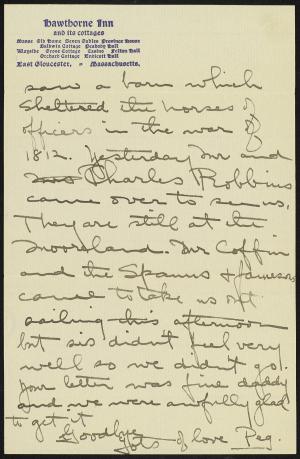 Hawthorne Inn
and its cottages
Manse Old Home Seven Gables Province House
Baldwin Cottage Peabody Hall
Wayside Grove Cottage Casino Felton Hall
Orchard Cottage Endicott Hall
East Gloucester, Massachusetts.
saw a barn which
sheltered the horses of
officers in the war of
1812. Yesterday Mr and
Mrs Charles Robbins
came over to see us.
They are still at the
Moorland. Mr Coffin
and the Spanns & Jamesons
came to take us out
sailing this afternoon
but sis didn't feel very
well so we didn't go.
Your letter was fine daddy
and we were awfully glad
to get it
Goodbye
lots of love Peg.